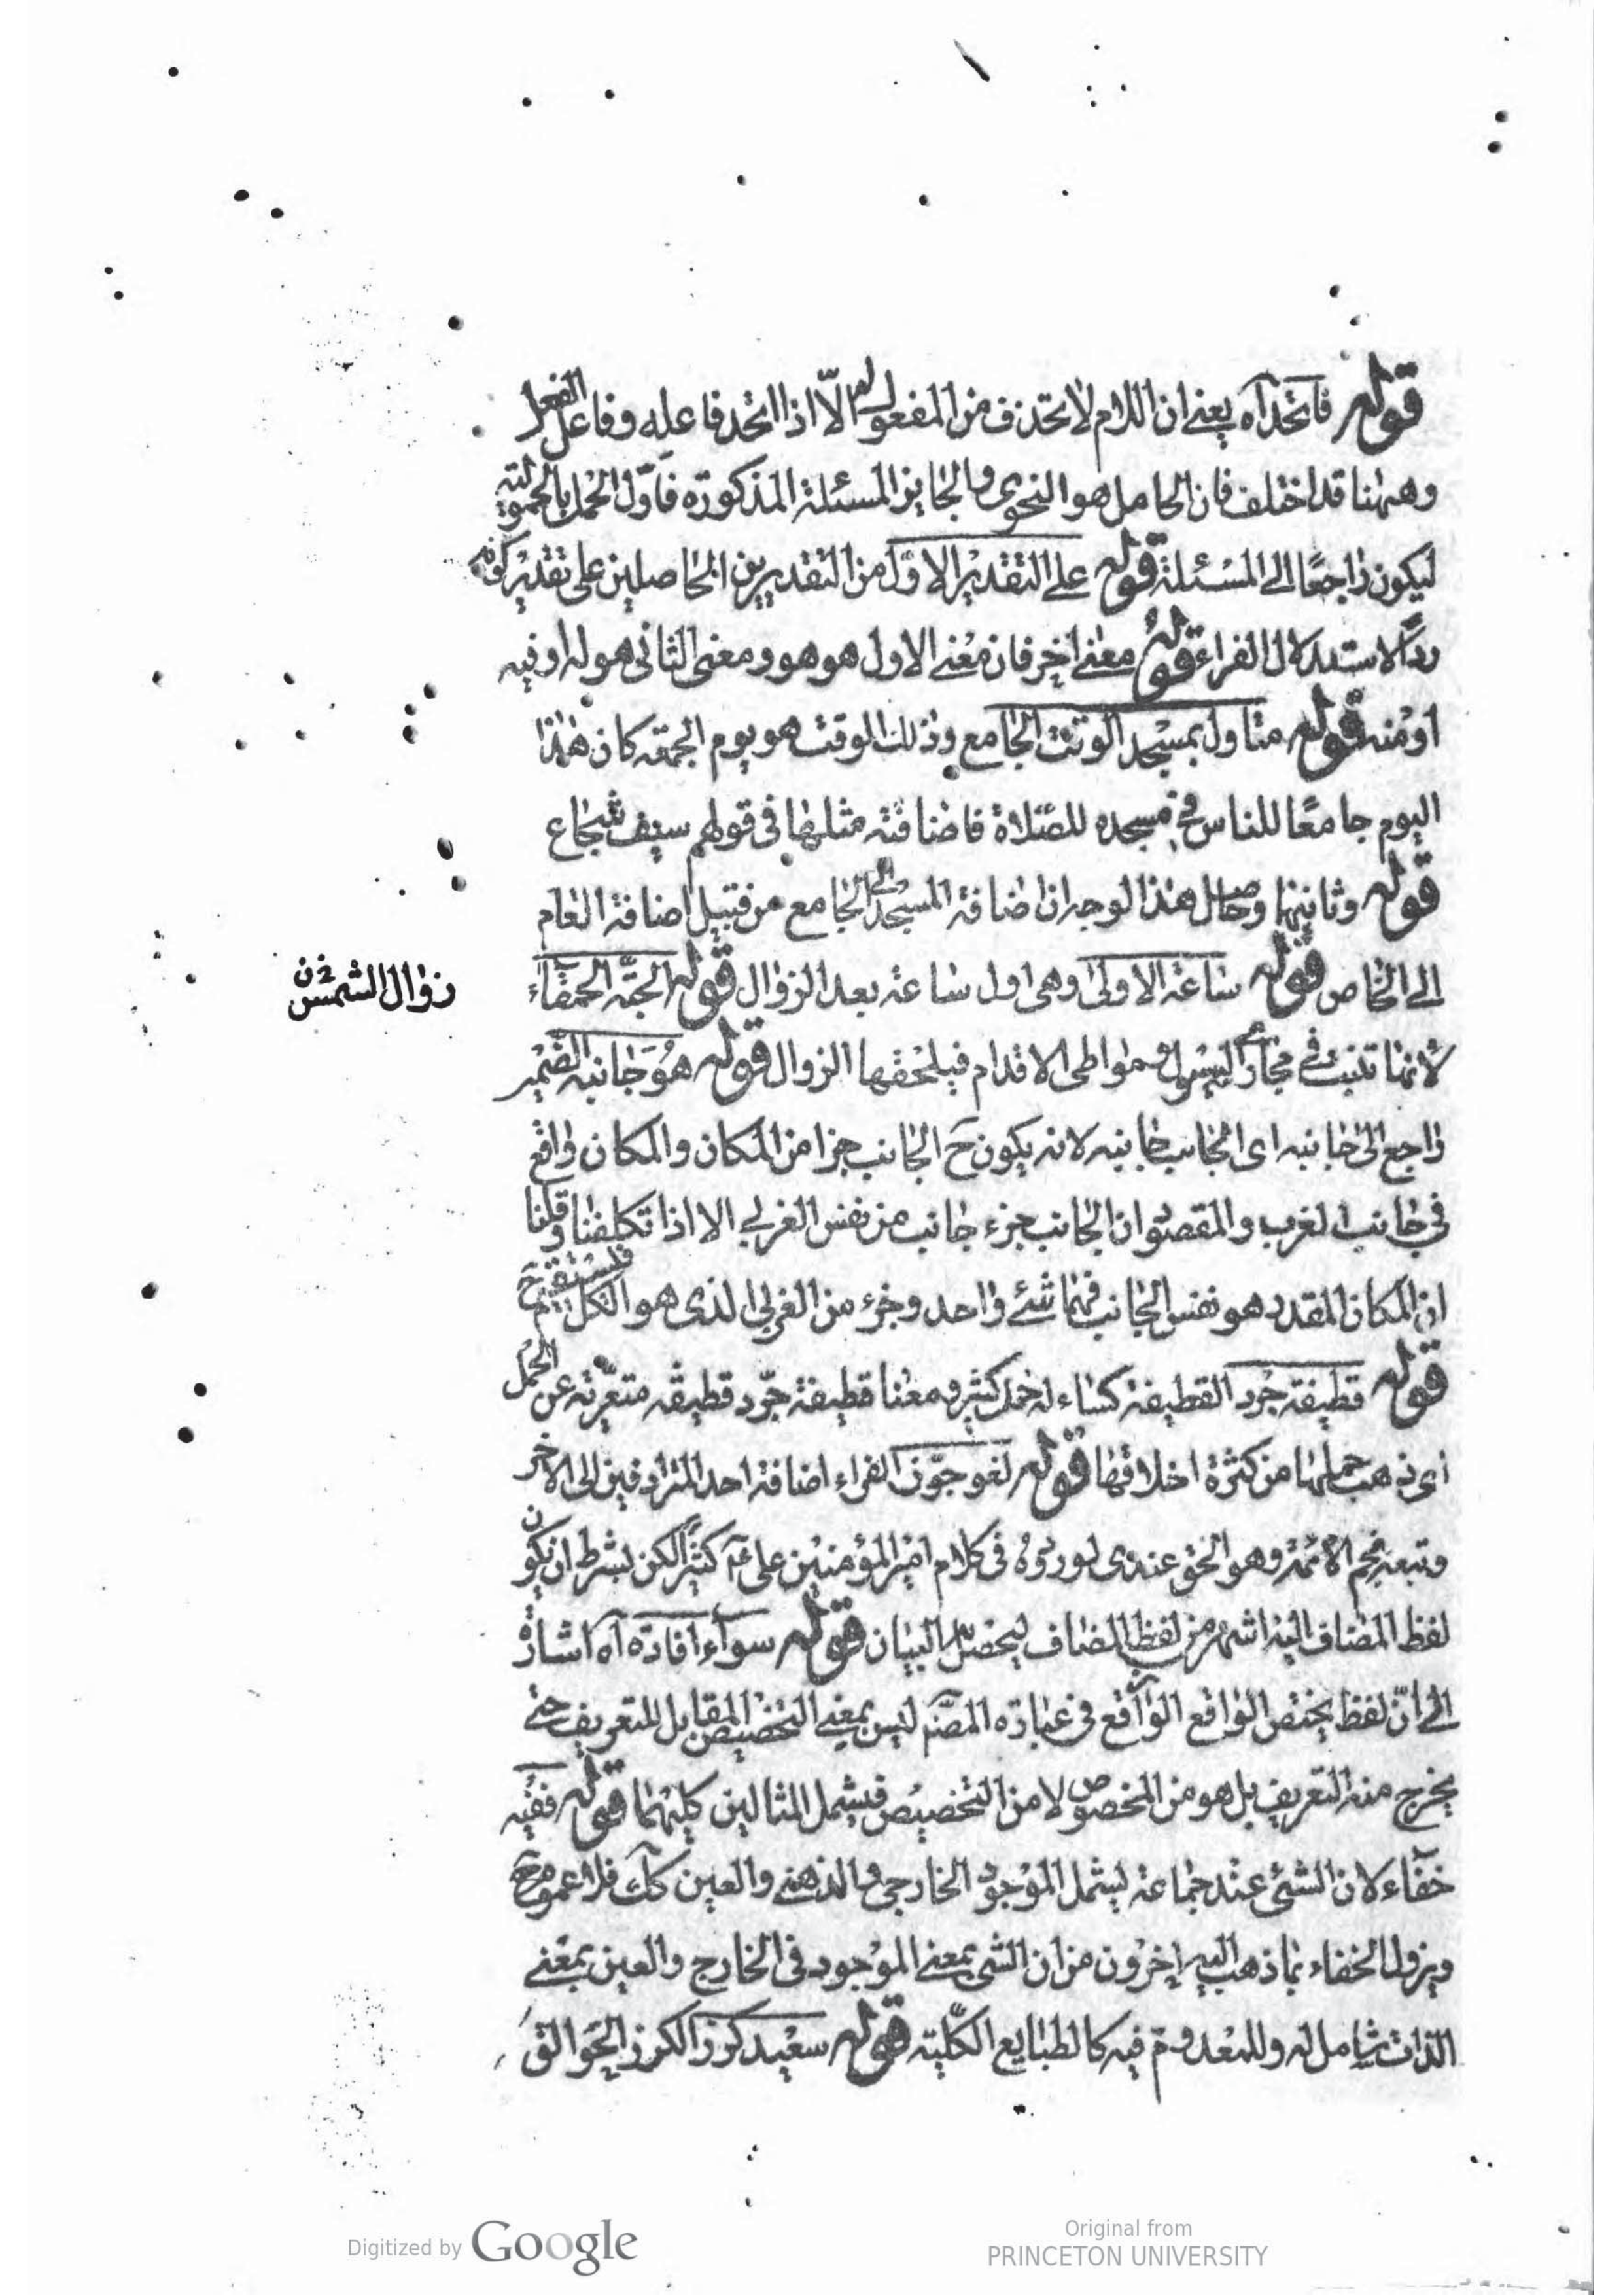 قوله فاتحد آه يعنى ان اللام لا تحذف من المفعول له الّا اذا اتحد فاعله وفاعل الفعل
وههنا قد اختلف فان الحامل هو النحوى والجايز المسئلة المذكورة فاوّل الحمل بالمحمولية
ليكون راجعًا الى المسئلة قوله على التقدير الاوّل من التقديرين الحاصلين على تقدير كونه
ردًّا لاستدلال الفراء قوله معنى اخر فان معنى الاول هو هو ومعنى الثانى هو له او فيه
او منه قوله متاول بمسجد الوقت الجامع وذلك الوقت هو يوم الجمعة كان هذا
اليوم جامعًا للناس فى مسجده للصّلاة فاضافته مثلها فى قولهم سيف شجاع
قوله وثانيها وحاصل هذا الوجه ان اضافة المسجد الى الجامع من قبيل اضافة العام
الى الخاص قوله ساعة الاولى وهى اول ساعة بعد الزوال قوله الحبّة الحمقاء
زوال الشمس خ ن
لانها تنبت فى مجارى السيول ومواطى الاقدام فيلحقها الزوال قوله هو جانبه الضمير
راجع الى جانبه اى الجانب جانبه لانه يكون ح الجانب جزا من المكان والمكان واقع
فى جانب الغرب والمقصود ان الجانب جزء جانب من نفس الغربى الا اذا تكلفنا وقلنا
ان المكان المقدر هو نفس الجانب فهما شئ واحد وجزء من الغربى الذى هو الكل فيستقيم ح
قوله قطيفة جرد القطيفة كساء له خمل كثير ومعنا قطيفة جرد قطيفه متعرّية عن الخمل
اى ذهب خملها من كثرة اخلاقها قوله لغو جوّز الفراء اضافة احد المترادفين الى الاخر
وتبعه نجم الائمة وهو الحق عندى لوروده فى كلام امير المؤمنين على ع كثيرًا لكن بشرط ان يكون
لفظ المضاف اليه اشهر من لفظ المضاف ليحصل البيان قوله سواء افادة آه اشارة
الى انّ لفظ يختص الواقع الواقع فى عبارة المصنّف ليس بمعنى التخصيص المقابل للتعريف حتى
يخرج منه التعريف بل هو من الخصوص لا من التخصيص فيشمل المثالين كليهما قوله ففيه
خفاء لان الشئ عند جماعة يشمل الموجود الخارجى والذهنى والعين كك فلا عموم ح
ويزول الخفاء بما ذهب اليه اخرون من ان الشئ بمعنى الموجود فى الخارج والعين بمعنى
الذات شامل له وللمعدوم فيه كالطبايع الكلّية قوله سعيد كرز الكرز الجوالق
Digitized by Google
Original from
PRINCETON UNIVERSITY